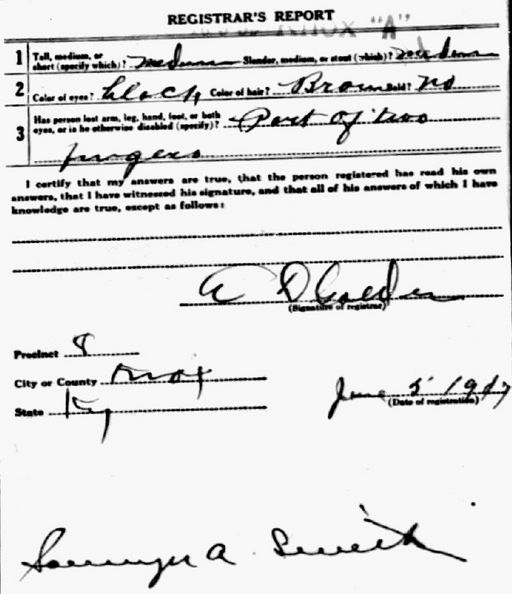 REGISTRAR'S REPORT
"A"
1 Tall, medium, or short (specify which)? medium Slender, medium, or stout (which)? medium
2 Color of eyes? black Color of hair? Brown Bald? No
3 Has person lost arm, leg, hand, foot, or both eyes, or is he otherwise disabled (specify)? Part of two
fingers
I certify that my answers are true, that the person registered has read his own
answers, that I have witnessed his signature, and that all of his answers of which I have
knowledge are true, except as follows:
A D Golden
(Signature of registrar)
Precinct 8
City or County Knox
State Ky
June 5 1917
(Date of registration)
A Smith